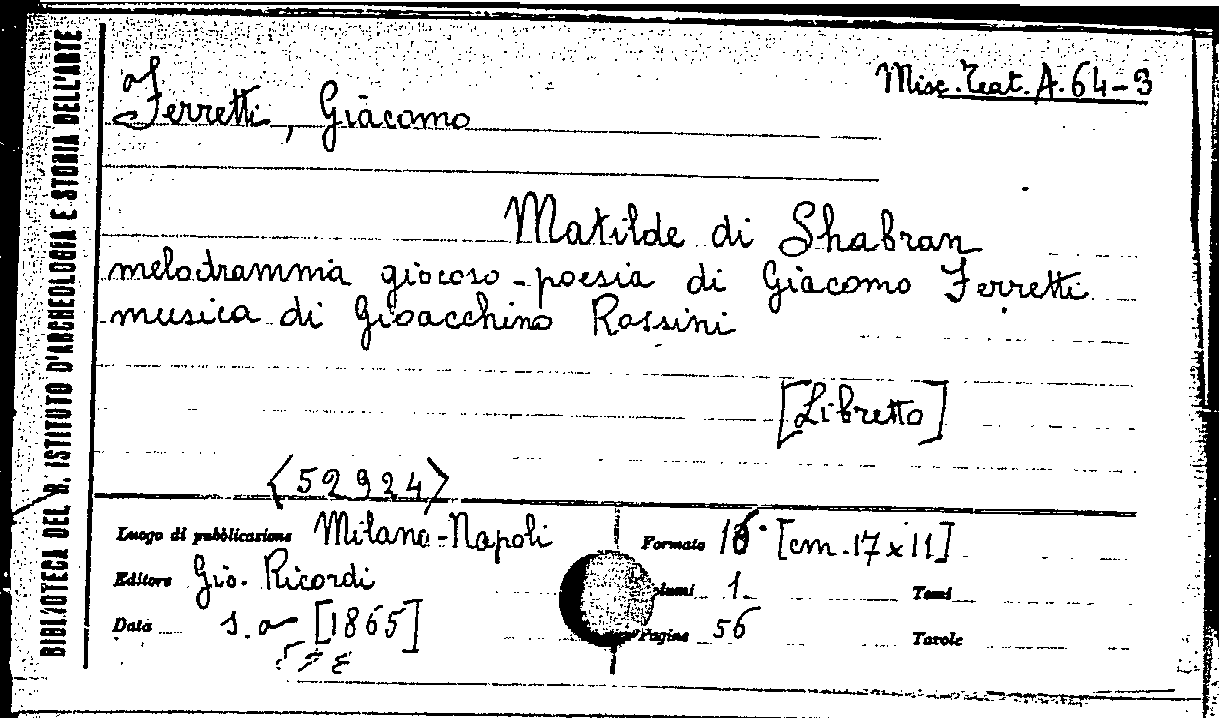 BIBLIOTECA DEL R. ISTITUTO D'ARCHEOLOGIA E STORIA DELL'ARTE
Misc. Teat. A. 64-3
Ferretti, Giacomo
Matilde di Shabran
melodramma giocoso - poesia di Giacomo Ferretti
musica di Gioacchino Rossini
[Libretto]
<52924>
Luogo di pubblicazione Milano-Napoli
Formato 16° [cm. 17x11]
Editore Gio. Ricordi
Volumi 1. Tomi
Data s.a. [1865]
Pagine 56 Tavole